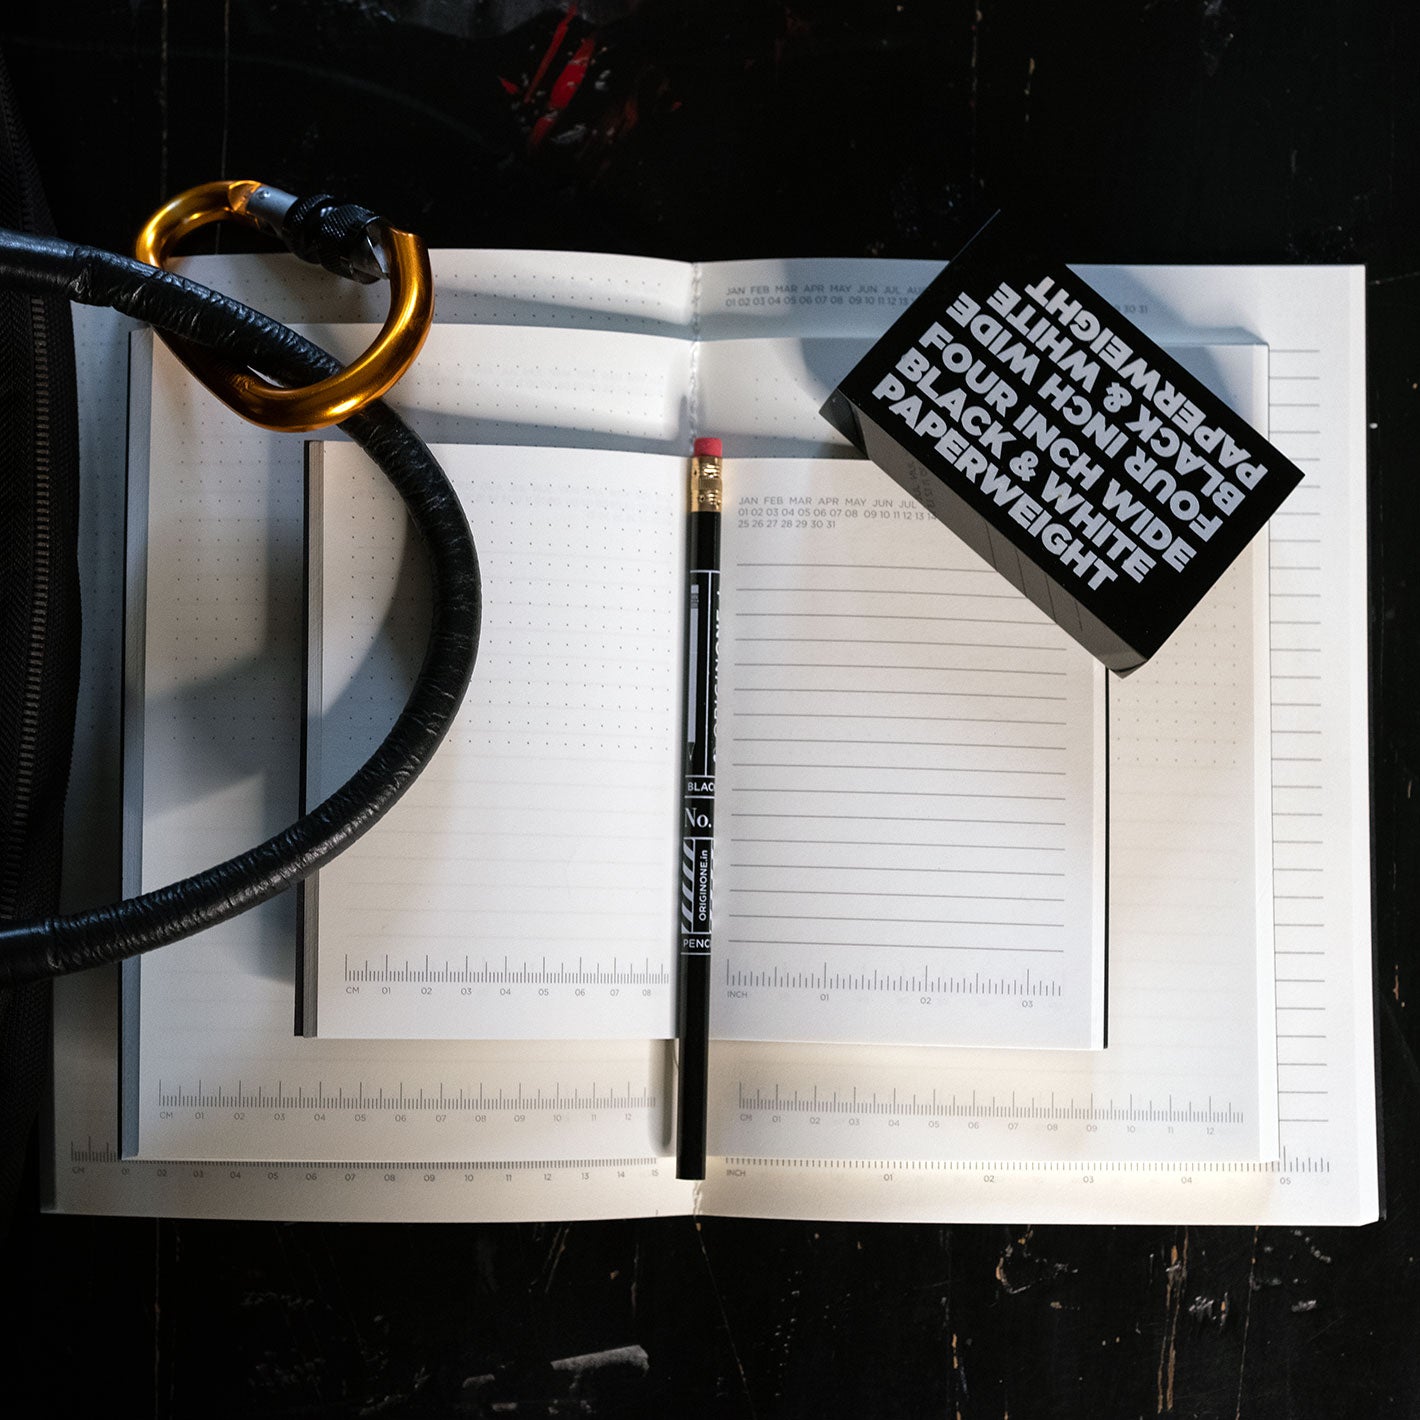 JAN FEB MAR APR MAY JUN JUL
01 02 03 04 05 06 07 08 09 10 11 12 13
30 31
FOUR INCH WIDE
BLACK & WHITE
PAPERWEIGHT
FOUR INCH WIDE
BLACK & WHITE
PAPERWEIGHT
JAN FEB MAR APR MAY JUN JUL
01 02 03 04 05 06 07 08 09 10 11 12 13 14
25 26 27 28 29 30 31
No.
ORIGINONE.in
CM 01 02 03 04 05 06 07 08
INCH 01 02 03
CM 01 02 03 04 05 06 07 08 09 10 11 12
CM 01 02 03 04 05 06 07 08 09 10 11 12
CM 01 02 03 04 05 06 07 08 09 10 11 12 13 14 15
INCH 01 02 03 04 05